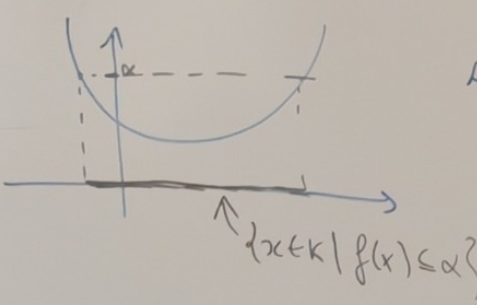 α
{x ∈ K | f(x) ≤ α}